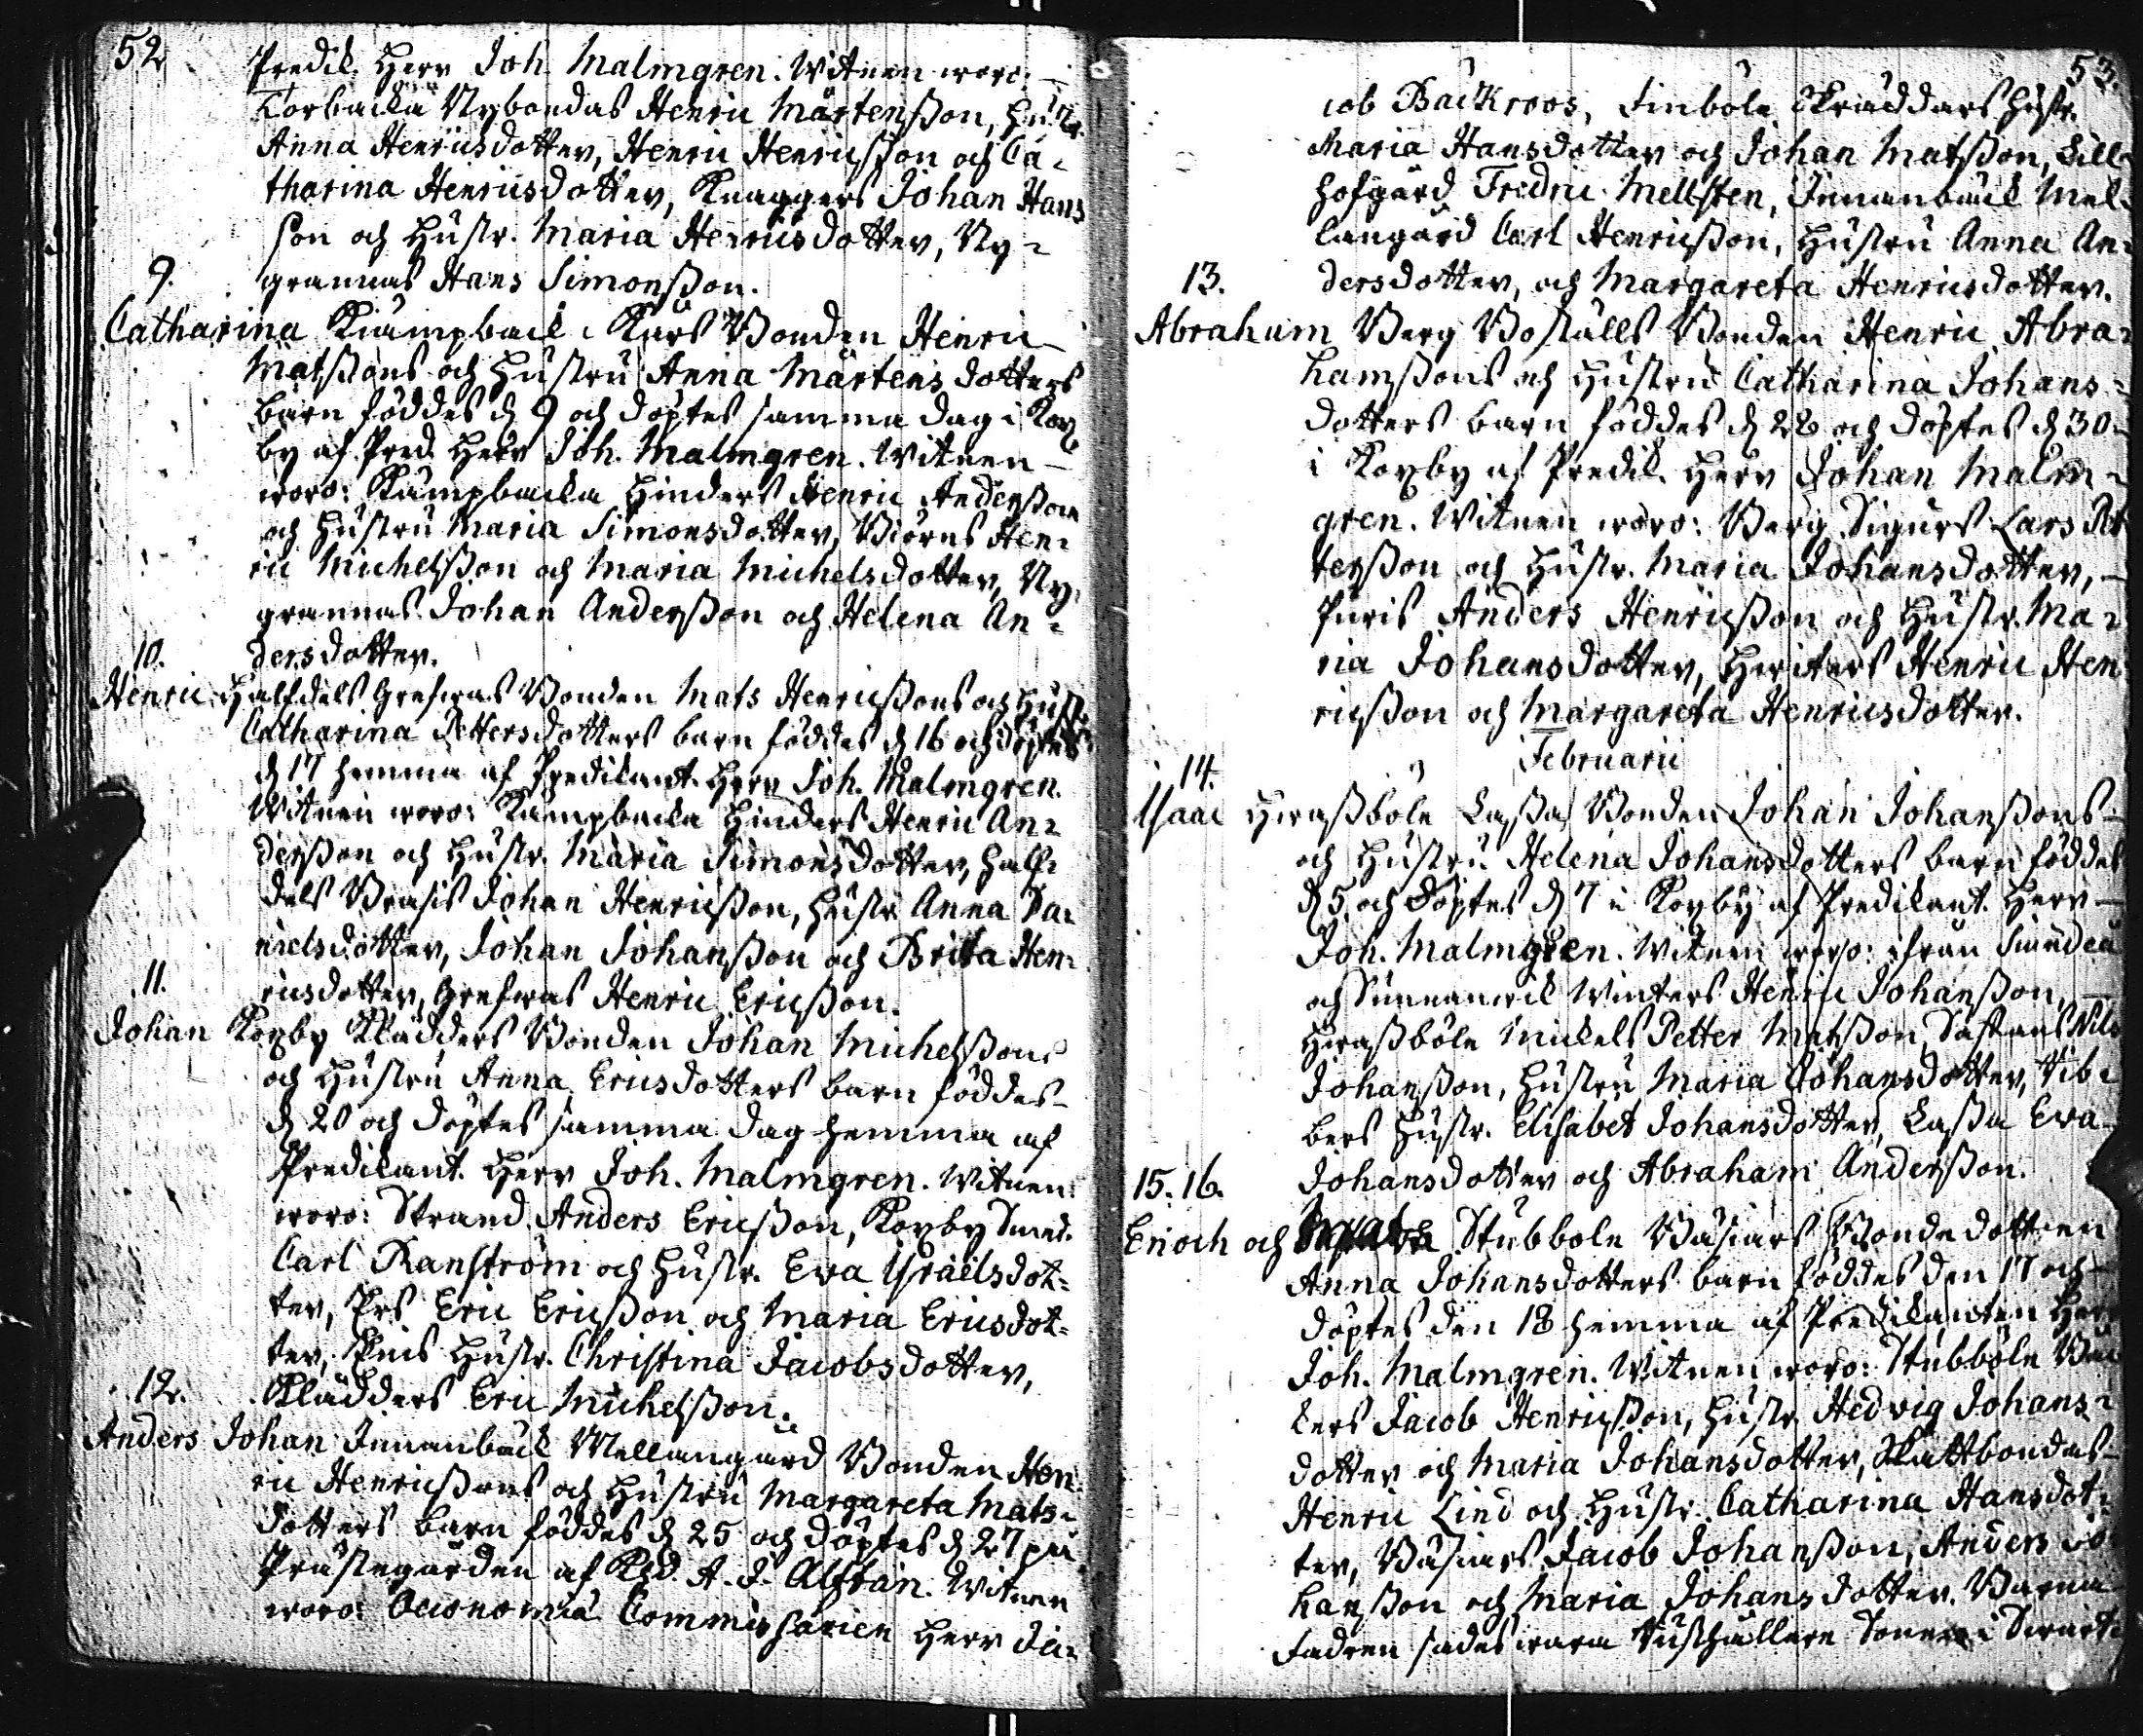 52
Predik. Herr Joh. Malmgren. Witnen woro:
Torbacka Nybondas Henric Mårtensson, Hustr.
Anna Henricsdotter, Henric Henricsson och Ca-
tharina Henricsdotter, Knaggers Johan Hans
son och Hustr. Maria Henricsdotter, Ny-
9. grannas Hans Simonsson.
Catharina Kiämpback Kårs Bonden Henric
Matssons och Hustru Anna Mårtens dotters
barn föddes d 9 och döptes samma dag i Korß
by af Pred. Herr Joh. Malmgren. Witnen
woro: Kämpbacka Hinders Henric Andersson
och Hustru Maria Simonsdotter, Biörns Hen-
ric Michelsson och Maria Michelsdotter, Ny-
grannas Johan Andersson och Helena An-
10. dersdotter.
Henric Halfdels Grefwas Bonden Mats Henricssons och Hust.
Catharina Pettersdotters barn föddes d 16 och döptes
d 17 hemma af Predikant. Herr Joh. Malmgren.
Witnen woro: Kämpbacka Hinders Henric An-
dersson och Hustr. Maria Simonsdotter, Half-
dels Brasis Johan Henricsson, Hustr. Anna Da-
nielsdotter, Johan Johansson och Brita Hen-
11. ricsdotter, Grefwas Henric Ericsson.
Johan Korßby Klädders Bonden Johan Michelssons
och Hustru Anna Ericsdotters barn föddes
d 20 och döptes samma dag hemma af
Predikant. Herr Joh. Malmgren. Witnen
woro: Strand Anders Ericsson, Korßby Smed.
Carl Ranström och Hustr. Ewa Israelsdot-
ter, Eric Ericsson och Maria Ericsdot-
ter, Hustr. Christina Jacobsdotter,
12. Klädders Eric Michelsson.
Anders Johan Innanbäck Mellangård Bonden Hen-
ric Henricssons och Hustru Margareta Mats-
dotters barn föddes d 25 och döptes d 27 på
Prästegården af A. J. Alftan. Witnen
woro: Oeconomiæ Commissarien Herr Ja-
53.
cob Backroos, Finböle Skräddars Hustr.
Maria Hansdotter och Johan Matsson, Lill
hofgård Fredric Mellsten, Innanbäck Mel-
langård Carl Henricsson, Hustru Anna An-
13. dersdotter, och Margareta Henricsdotter.
Abraham Berg Boställs Bonden Henric Abra-
hamssons och Hustru Catharina Johans-
dotters barn föddes d 28 och döptes d 30
i Korßby af Predik. Herr Johan Malm-
gren. Witnen woro: Berg Sigurs Lars Pet
tersson och Hustr. Maria Johansdotter,
Puris Anders Henricsson och Hustr. Ma-
ria Johansdotter, Henric Hen
ricsson och Margareta Henricsdotter.
Februarii
14.
Isaac Heraßböle Lassas Bonden Johan Johanssons
och Hustru Helena Johansdotters barn föddes
d 5 och döptes d 7 i Korßby af Predikant. Herr
Joh. Malmgren. Witnen woro: ifrån
och Sunnanwik Winters Henric Johansson,
Heraßböle Mickels Petter Matsson, Nils
Johansson, Hustru Maria Johansdotter, Vib-
bers Hustr. Elisabet Johansdotter, Lassa Ewa
15. 16. Johansdotter och Abraham Andersson.
Enoch och Stubböle Bäsars Bondedottren
Anna Johansdotters barn föddes den 17 och
döptes den 18 hemma af Predikanten Herr
Joh. Malmgren. Witnen woro: Stubböle Bac
kers Jacob Henricsson, Hustr. Hedvig Johans-
dotter och Maria Johansdotter, Skattbondas
Henric Lind och Hustr. Catharina Hansdot-
ter, Bäsars Jacob Johansson, Anders Jo
hansson och Maria Johansdotter. Barna
fadren sades wara